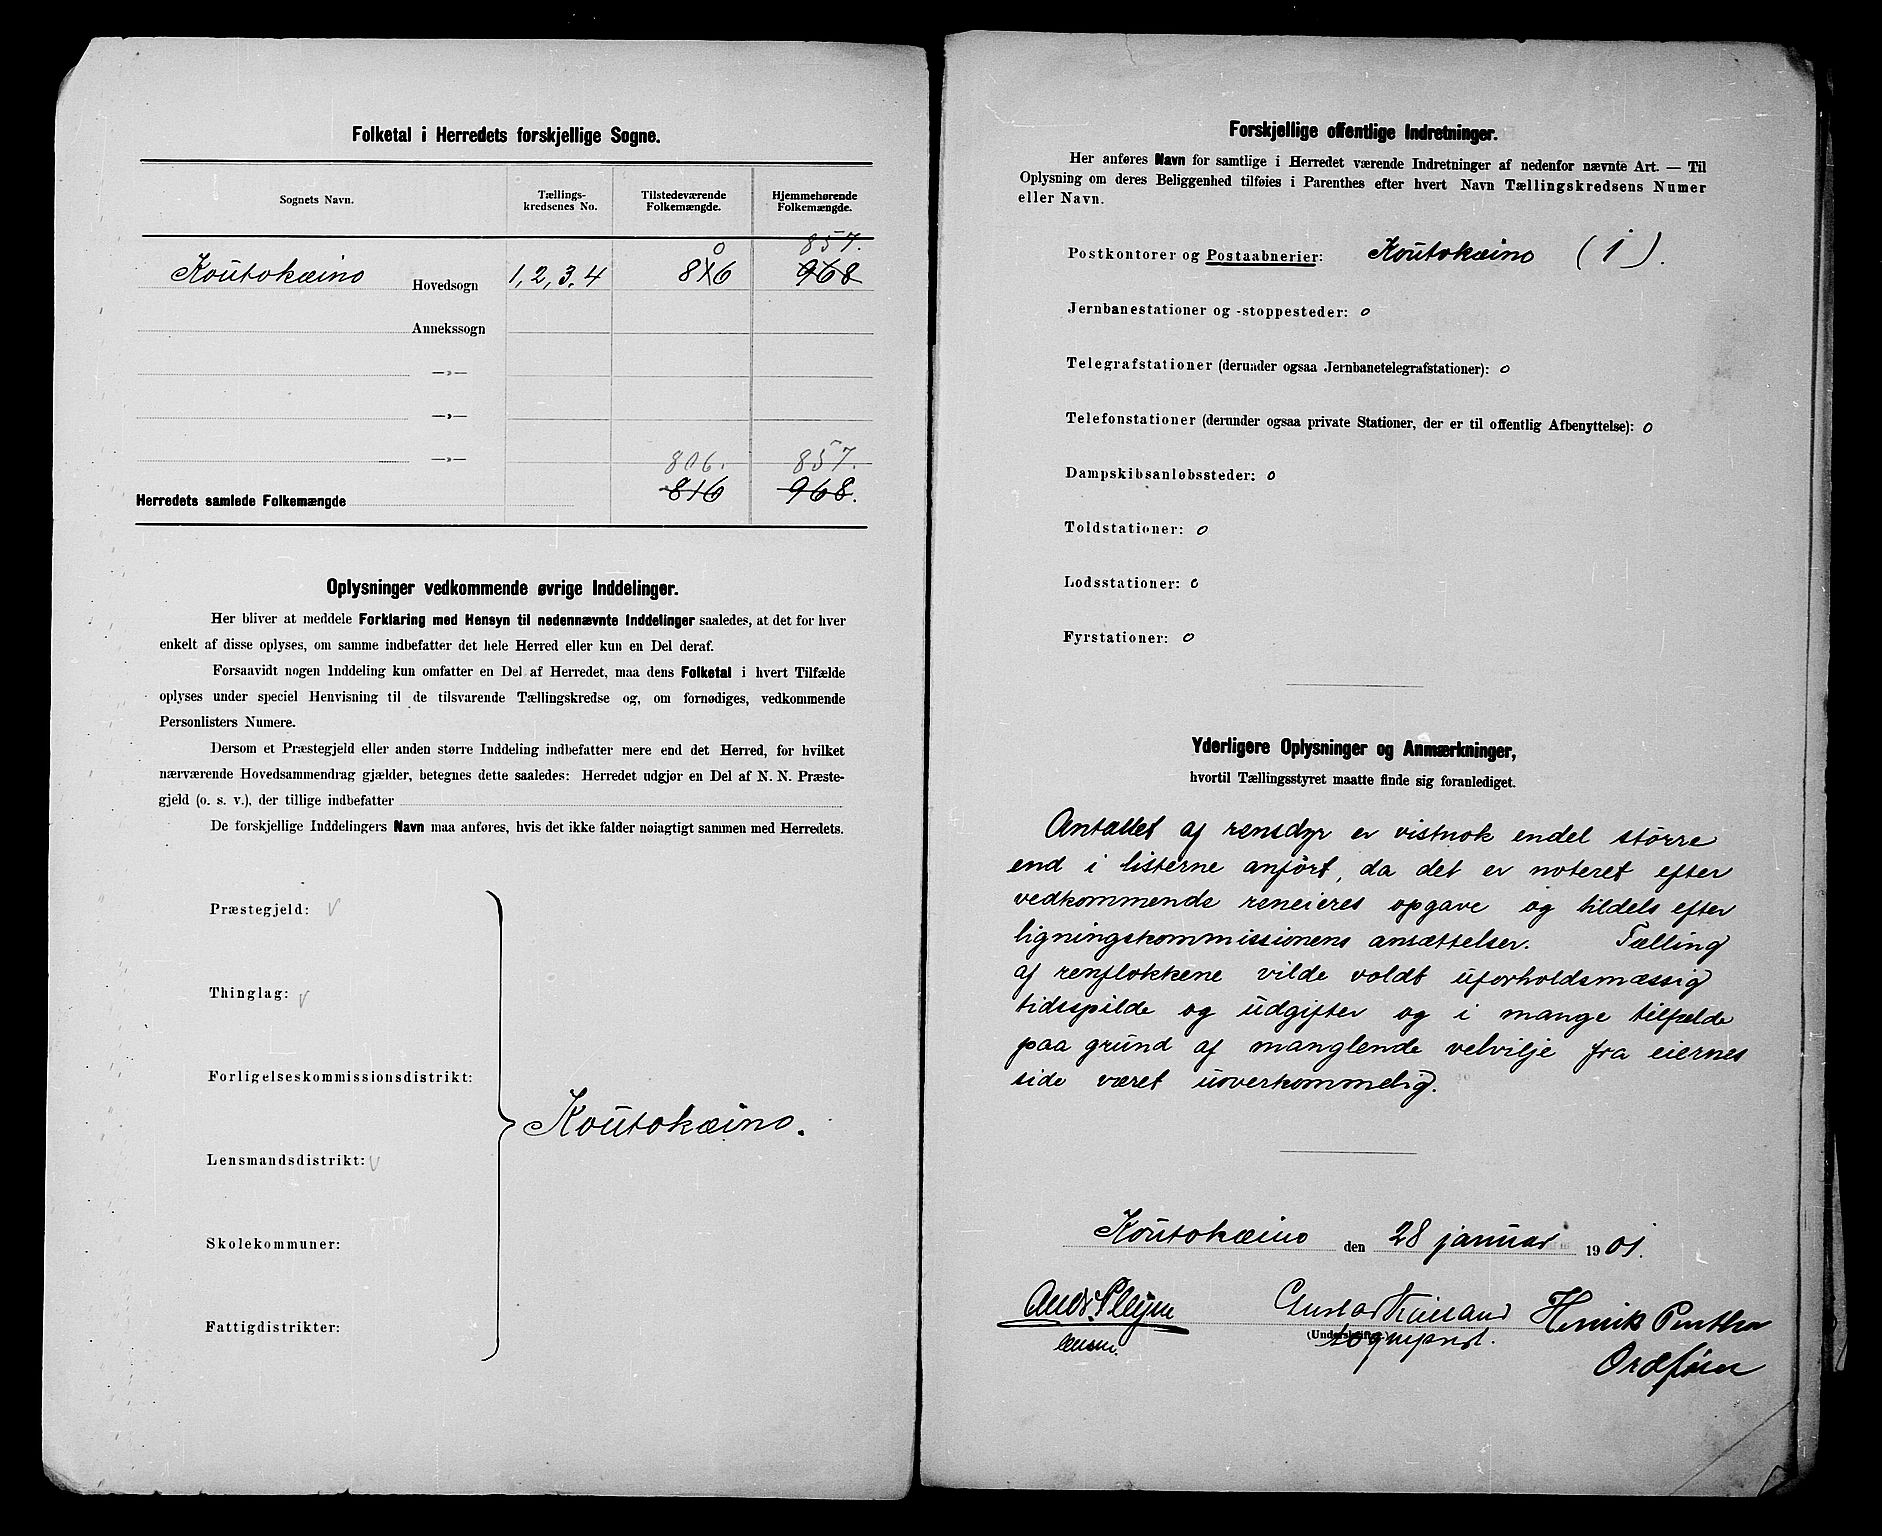 Folketal i Herredets forskjellige Sogne.
Sognets Navn.
Tællings-
kredsenes No.
Tilstedeværende
Folkemængde.
Hjemmehørende
Folkemængde.
0
857.
Koutokæino Hovedsogn 1, 2, 3, 4 816 968
Annekssogn
—»—
—»—
—»— 806. 857.
Herredets samlede Folkemængde 816 968.
Oplysninger vedkommende øvrige Inddelinger.
Her bliver at meddele Forklaring med Hensyn til nedennævnte Inddelinger saaledes, at det for hver
enkelt af disse oplyses, om samme indbefatter det hele Herred eller kun en Del deraf.
Forsaavidt nogen Inddeling kun omfatter en Del af Herredet, maa dens Folketal i hvert Tilfælde
oplyses under speciel Henvisning til de tilsvarende Tællingskredse og, om fornødiges, vedkommende
Personlisters Numere.
Dersom et Præstegjeld eller anden større Inddeling indbefatter mere end det Herred, for hvilket
nærværende Hovedsammendrag gjælder, betegnes dette saaledes: Herredet udgjør en Del af N. N. Præste-
gjeld (o. s. v.), der tillige indbefatter
De forskjellige Inddelingers Navn maa anføres, hvis det ikke falder nøiagtigt sammen med Herredets.
Præstegjeld: v
Thinglag: v
Forligelseskommissionsdistrikt:
Koutokæino.
Lensmandsdistrikt: v
Skolekommuner:
Fattigdistrikter:
Forskjellige offentlige Indretninger.
Her anføres Navn for samtlige i Herredet værende Indretninger af nedenfor nævnte Art. — Til
Oplysning om deres Beliggenhed tilføies i Parenthes efter hvert Navn Tællingskredsens Numer
eller Navn.
Postkontorer og Postaabnerier: Koutokæino (1).
Jernbanestationer og -stoppesteder: 0
Telegrafstationer (derunder ogsaa Jernbanetelegrafstationer): 0
Telefonstationer (derunder ogsaa private Stationer, der er til offentlig Afbenyttelse): 0
Dampskibsanløbssteder: 0
Toldstationer: 0
Lodsstationer: 0
Fyrstationer: 0
Yderligere Oplysninger og Anmærkninger,
hvortil Tællingsstyret maatte finde sig foranlediget.
Antallet af rensdyr er vistnok endel större
end i listerne anført, da det er noteret efter
vedkommende reneieres opgave og tildels efter
ligningskommissionens ansættelser. Tælling
af renflokkene vilde voldt uforholdsmæssig
tidsspilde og udgifter og i mange tilfælde
paa grund af manglende velvilje fra eiernes
side været uoverkommelig.
Koutokæino den 28 januar 1901.
Gustav Kielland Henrik
(Underskrifter)
sogneprst.
Ordfører